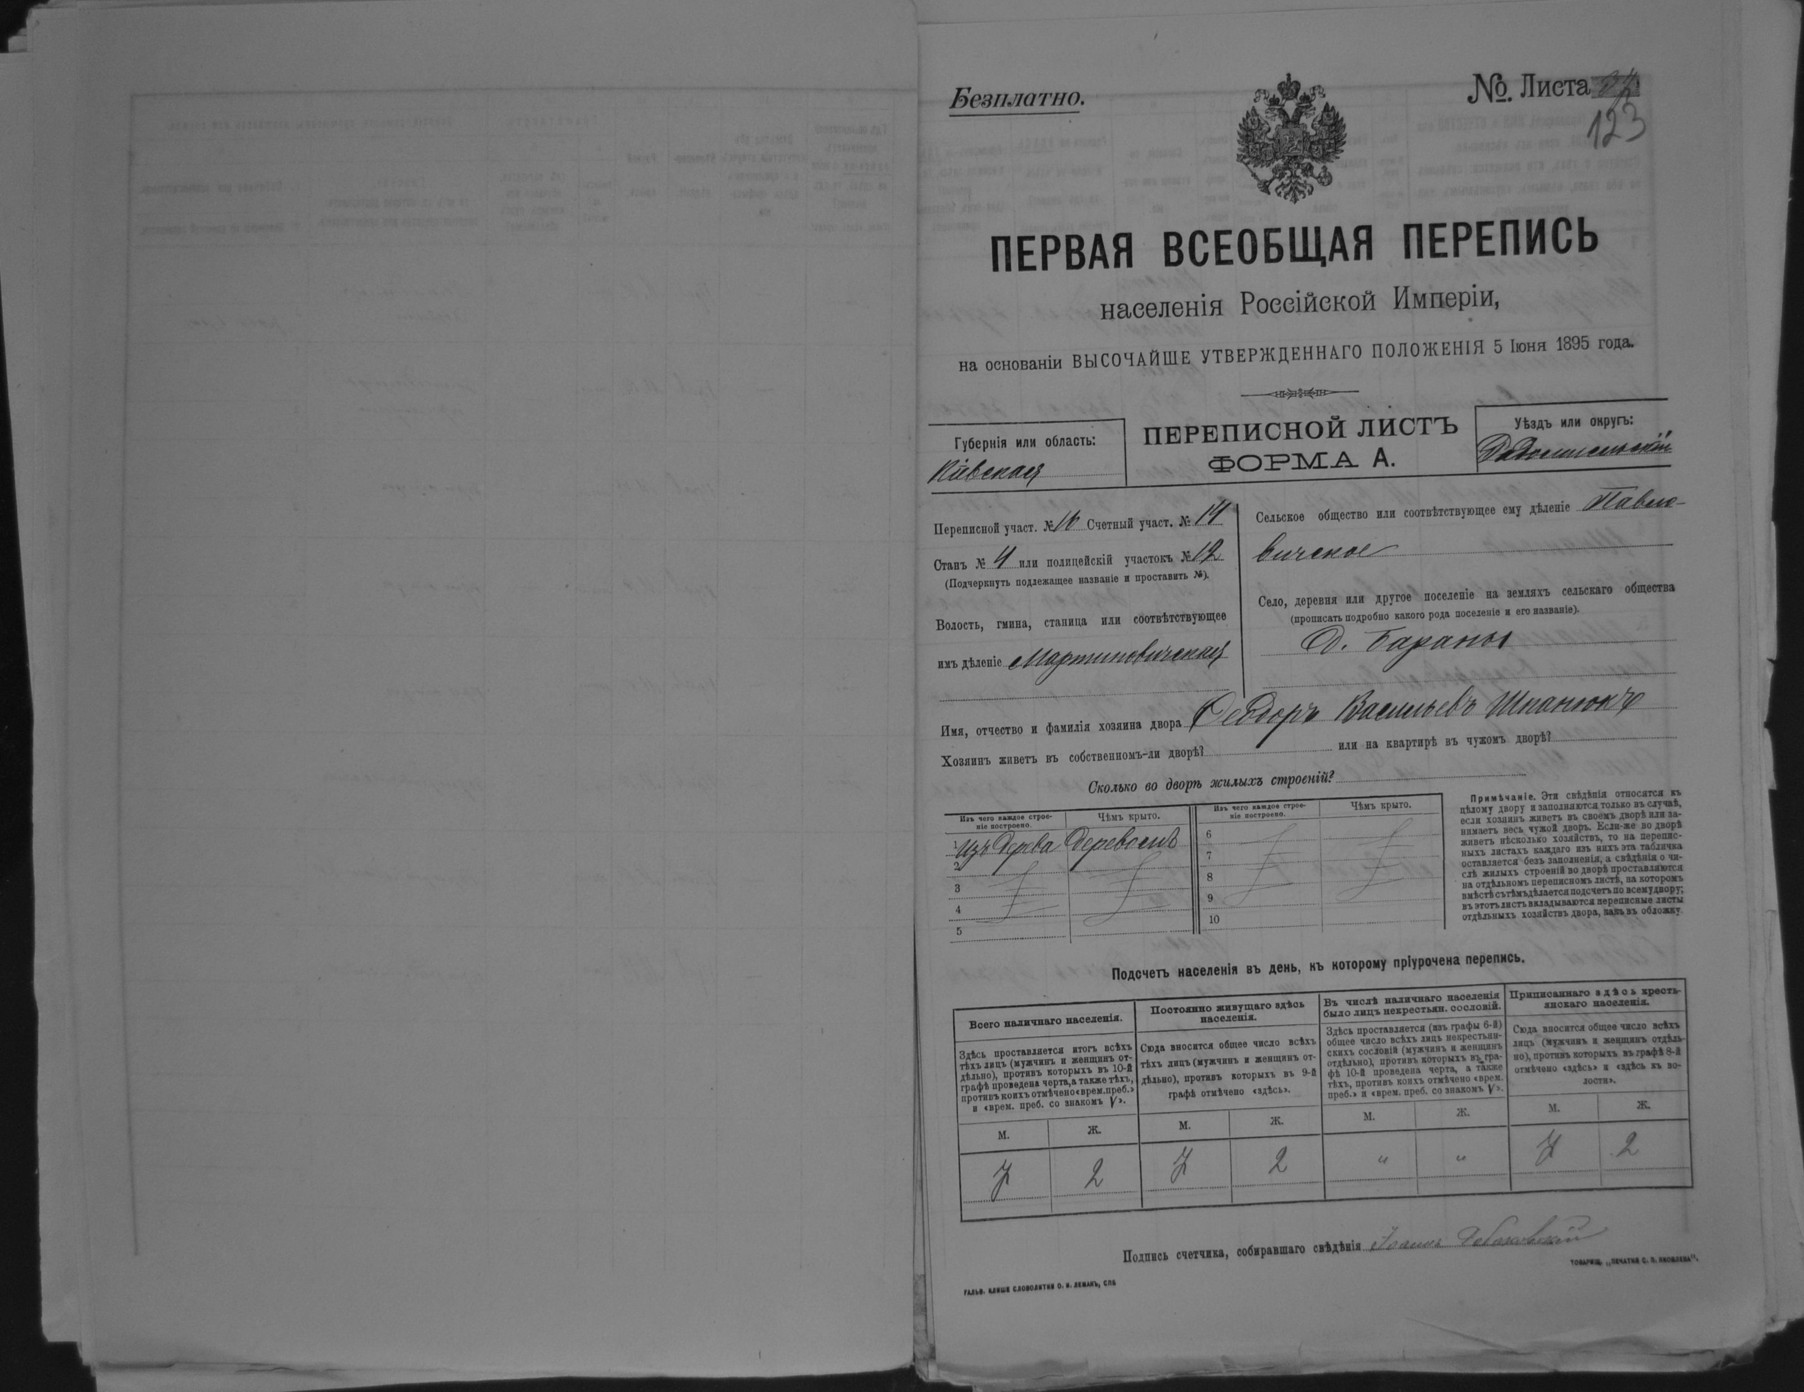 Безплатно.
№ Листа
123
ПЕРВАЯ ВСЕОБЩАЯ ПЕРЕПИСЬ
населенія Россійской Имперіи,
на основаніи ВЫСОЧАЙШЕ УТВЕРЖДЕННАГО ПОЛОЖЕНІЯ 5 Іюня 1895 года.
Губернія или область:
Кіевская
ПЕРЕПИСНОЙ ЛИСТЪ
ФОРМА А.
Уѣздъ или округъ:
Радомысльскій
Переписной участ. № Счетный участ. № 14
Станъ № 4 или полицейскій участокъ № 12
(Подчеркнуть подлежащее названіе и проставить №).
Волость, гмина, станица или соотвѣтствующее
имъ дѣленіе Мартиновичская
Сельское общество или соотвѣтствующее ему дѣленіе Павло-
вичское
Село, деревня или другое поселеніе на земляхъ сельскаго общества
(прописать подробно какого рода поселеніе и его названіе).
Д. Бараны
Имя, отчество и фамилія хозяина двора Феодоръ Васильевъ Шпанюкъ
Хозяинъ живетъ въ собственномъ-ли дворѣ? или на квартирѣ въ чужомъ дворѣ?
Сколько во дворѣ жилыхъ строеній?
Изъ чего каждое строе-
ніе построено.
Чѣмъ крыто.
1 изъ дерева деревомъ
2
3
4
5
Изъ чего каждое строе-
ніе построено.
Чѣмъ крыто.
6
7
8
9
10
Примѣчаніе. Эти свѣдѣнія относятся къ
цѣлому двору и заполняются только въ случаѣ,
если хозяинъ живетъ въ своемъ дворѣ или за-
нимаетъ весь чужой дворъ. Если-же во дворѣ
живетъ нѣсколько хозяйствъ, то на перепис-
ныхъ листахъ каждаго изъ нихъ эта табличка
оставляется безъ заполненія, а свѣдѣнія о чи-
слѣ жилыхъ строеній во дворѣ проставляются
на отдѣльномъ переписномъ листѣ, на которомъ
вмѣстѣ съ тѣмъ дѣлается подсчетъ по всему двору;
въ этотъ листъ вкладываются переписные листы
отдѣльныхъ хозяйствъ двора, какъ въ обложку.
Подсчетъ населенія въ день, къ которому пріурочена перепись.
Всего наличнаго населенія.
Здѣсь проставляется итогъ всѣхъ
тѣхъ лицъ (мужчинъ и женщинъ от-
дѣльно), противъ которыхъ въ 10-й
графѣ проведена черта, а также тѣхъ,
противъ коихъ отмѣчено «врем. преб.»
и «врем. преб. со знакомъ V».
М. Ж.
7 2
Постоянно живущаго здѣсь
населенія.
Сюда вносится общее число всѣхъ
тѣхъ лицъ (мужчинъ и женщинъ от-
дѣльно), противъ которыхъ въ 9-й
графѣ отмѣчено «здѣсь».
М. Ж.
7 2
Въ числѣ наличнаго населенія
было лицъ некрестьян. сословій.
Здѣсь проставляется (изъ графы 6-й)
общее число всѣхъ лицъ некрестьян-
скихъ сословій (мужчинъ и женщинъ
отдѣльно), противъ которыхъ въ гра-
фѣ 10-й проведена черта, а также
тѣхъ, противъ коихъ отмѣчено «врем.
преб.» и «врем. преб. со знакомъ V».
М. Ж.
" "
Приписаннаго здѣсь кресть-
янскаго населенія.
Сюда вносится общее число всѣхъ
лицъ (мужчинъ и женщинъ отдѣль-
но), противъ которыхъ въ графѣ 8-й
отмѣчено «здѣсь» и «здѣсь къ во-
лости».
М. Ж.
7 2
Подпись счетчика, собиравшаго свѣдѣнія Іоаннъ
ГАЛЬВ. КЛИШЕ СЛОВОЛИТНИ О. И. ЛЕМАНЪ, СПБ
ТОВАРИЩ. „ПЕЧАТНЯ С. П. ЯКОВЛЕВА".